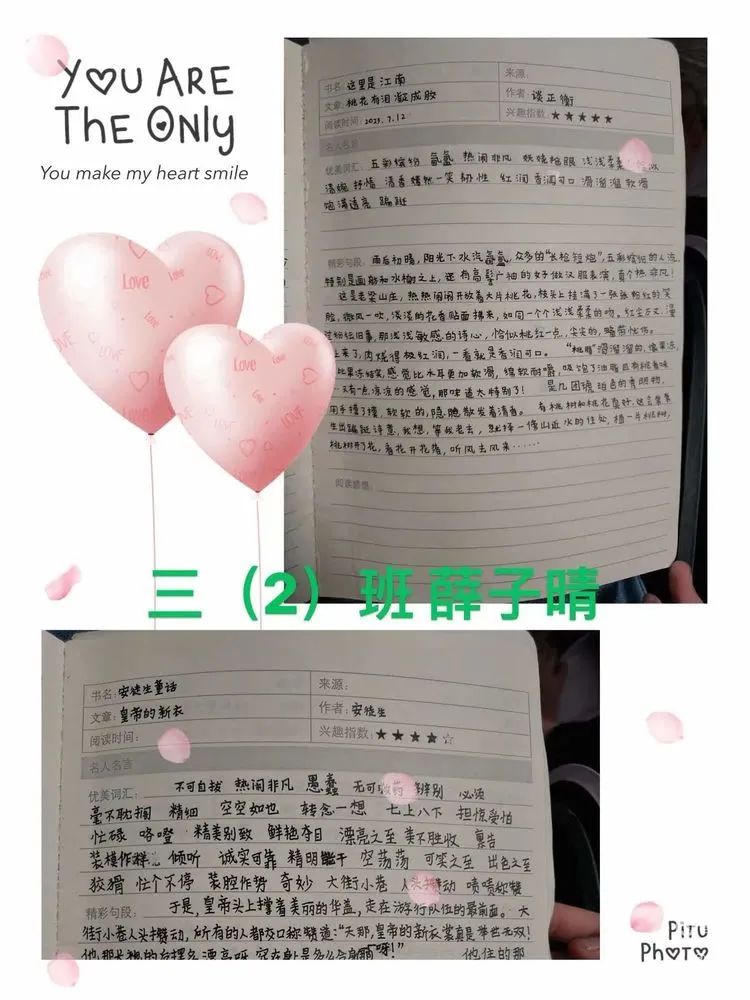 YOU ARE
THE ONLY
You make my heart smile
书名: 这里是江南
来源:
文章: 桃花有泪凝成胶
作者: 谈正衡
阅读时间: 2023.7.12
兴趣指数: ★★★★★
名人名言
优美词汇: 五彩缤纷 氤氲 热闹非凡 妖娆艳眼 浅浅柔柔 恰似
清婉 抒情 清香 嫣然一笑 韧性 红润 香润可口 滑溜溜 软滑
饱满透亮 蹁跹
精彩句段: 雨后初晴,阳光下水汽氤氲,众多的“长枪短炮”,五彩缤纷的人流,
特别是画舫和水榭之上,还有高髻广袖的女子做汉服表演,真个热非凡!
这是老梁山庄,热热闹闹开放着大片桃花,枝头上挂满了一张张粉红的笑
脸,微风一吹,淡淡的花香贴面拂来,如同一个个浅浅柔柔的吻。红尘万丈,漫
过纷纭旧事,那浅浅敏感的诗心,恰似桃红一点,尖尖的,略带忧伤。
上来了,肉烧得极红润,一看就是香润可口。 “桃脂”滑溜溜的,像果冻,
比果冻结实,感觉比木耳更加软滑,绵软耐嚼,吸饱了油脂且有桃香味
又有一点凉凉的感觉,那味道太特别了! 是几团琥珀色的膏脂物,
用手摸了摸,软软的,隐隐散发着清香。 有桃树和桃花真好,这意象常
生出蹁跹诗意,我想,等我老去,就择一傍山近水的住处,植一片桃树,
桃树开了花,看花开花落,听风去风来……
阅读感想:
三（2）班 薛子晴
书名: 安徒生童话
来源:
文章: 皇帝的新衣
作者: 安徒生
阅读时间:
兴趣指数: ★★★★☆
名人名言
优美词汇: 不可自拔 热闹非凡 愚蠢 无可救药 辨别 必须
毫不耽搁 精细 空空如也 转念一想 七上八下 担惊受怕
忙碌 咯噔 精美别致 鲜艳夺目 漂亮之至 美不胜收 禀告
装模作样 倾听 诚实可靠 精明能干 空荡荡 可笑之至 出色之至
狡猾 忙个不停 装腔作势 奇妙 大街小巷 人头攒动 啧啧称赞
精彩句段: 于是,皇帝头上撑着美丽的华盖,走在游行队伍的最前面。大
街小巷人头攒动,所有的人都交口称赞道:“天那,皇帝的新衣裳真是举世无双!
Pitu
Photo